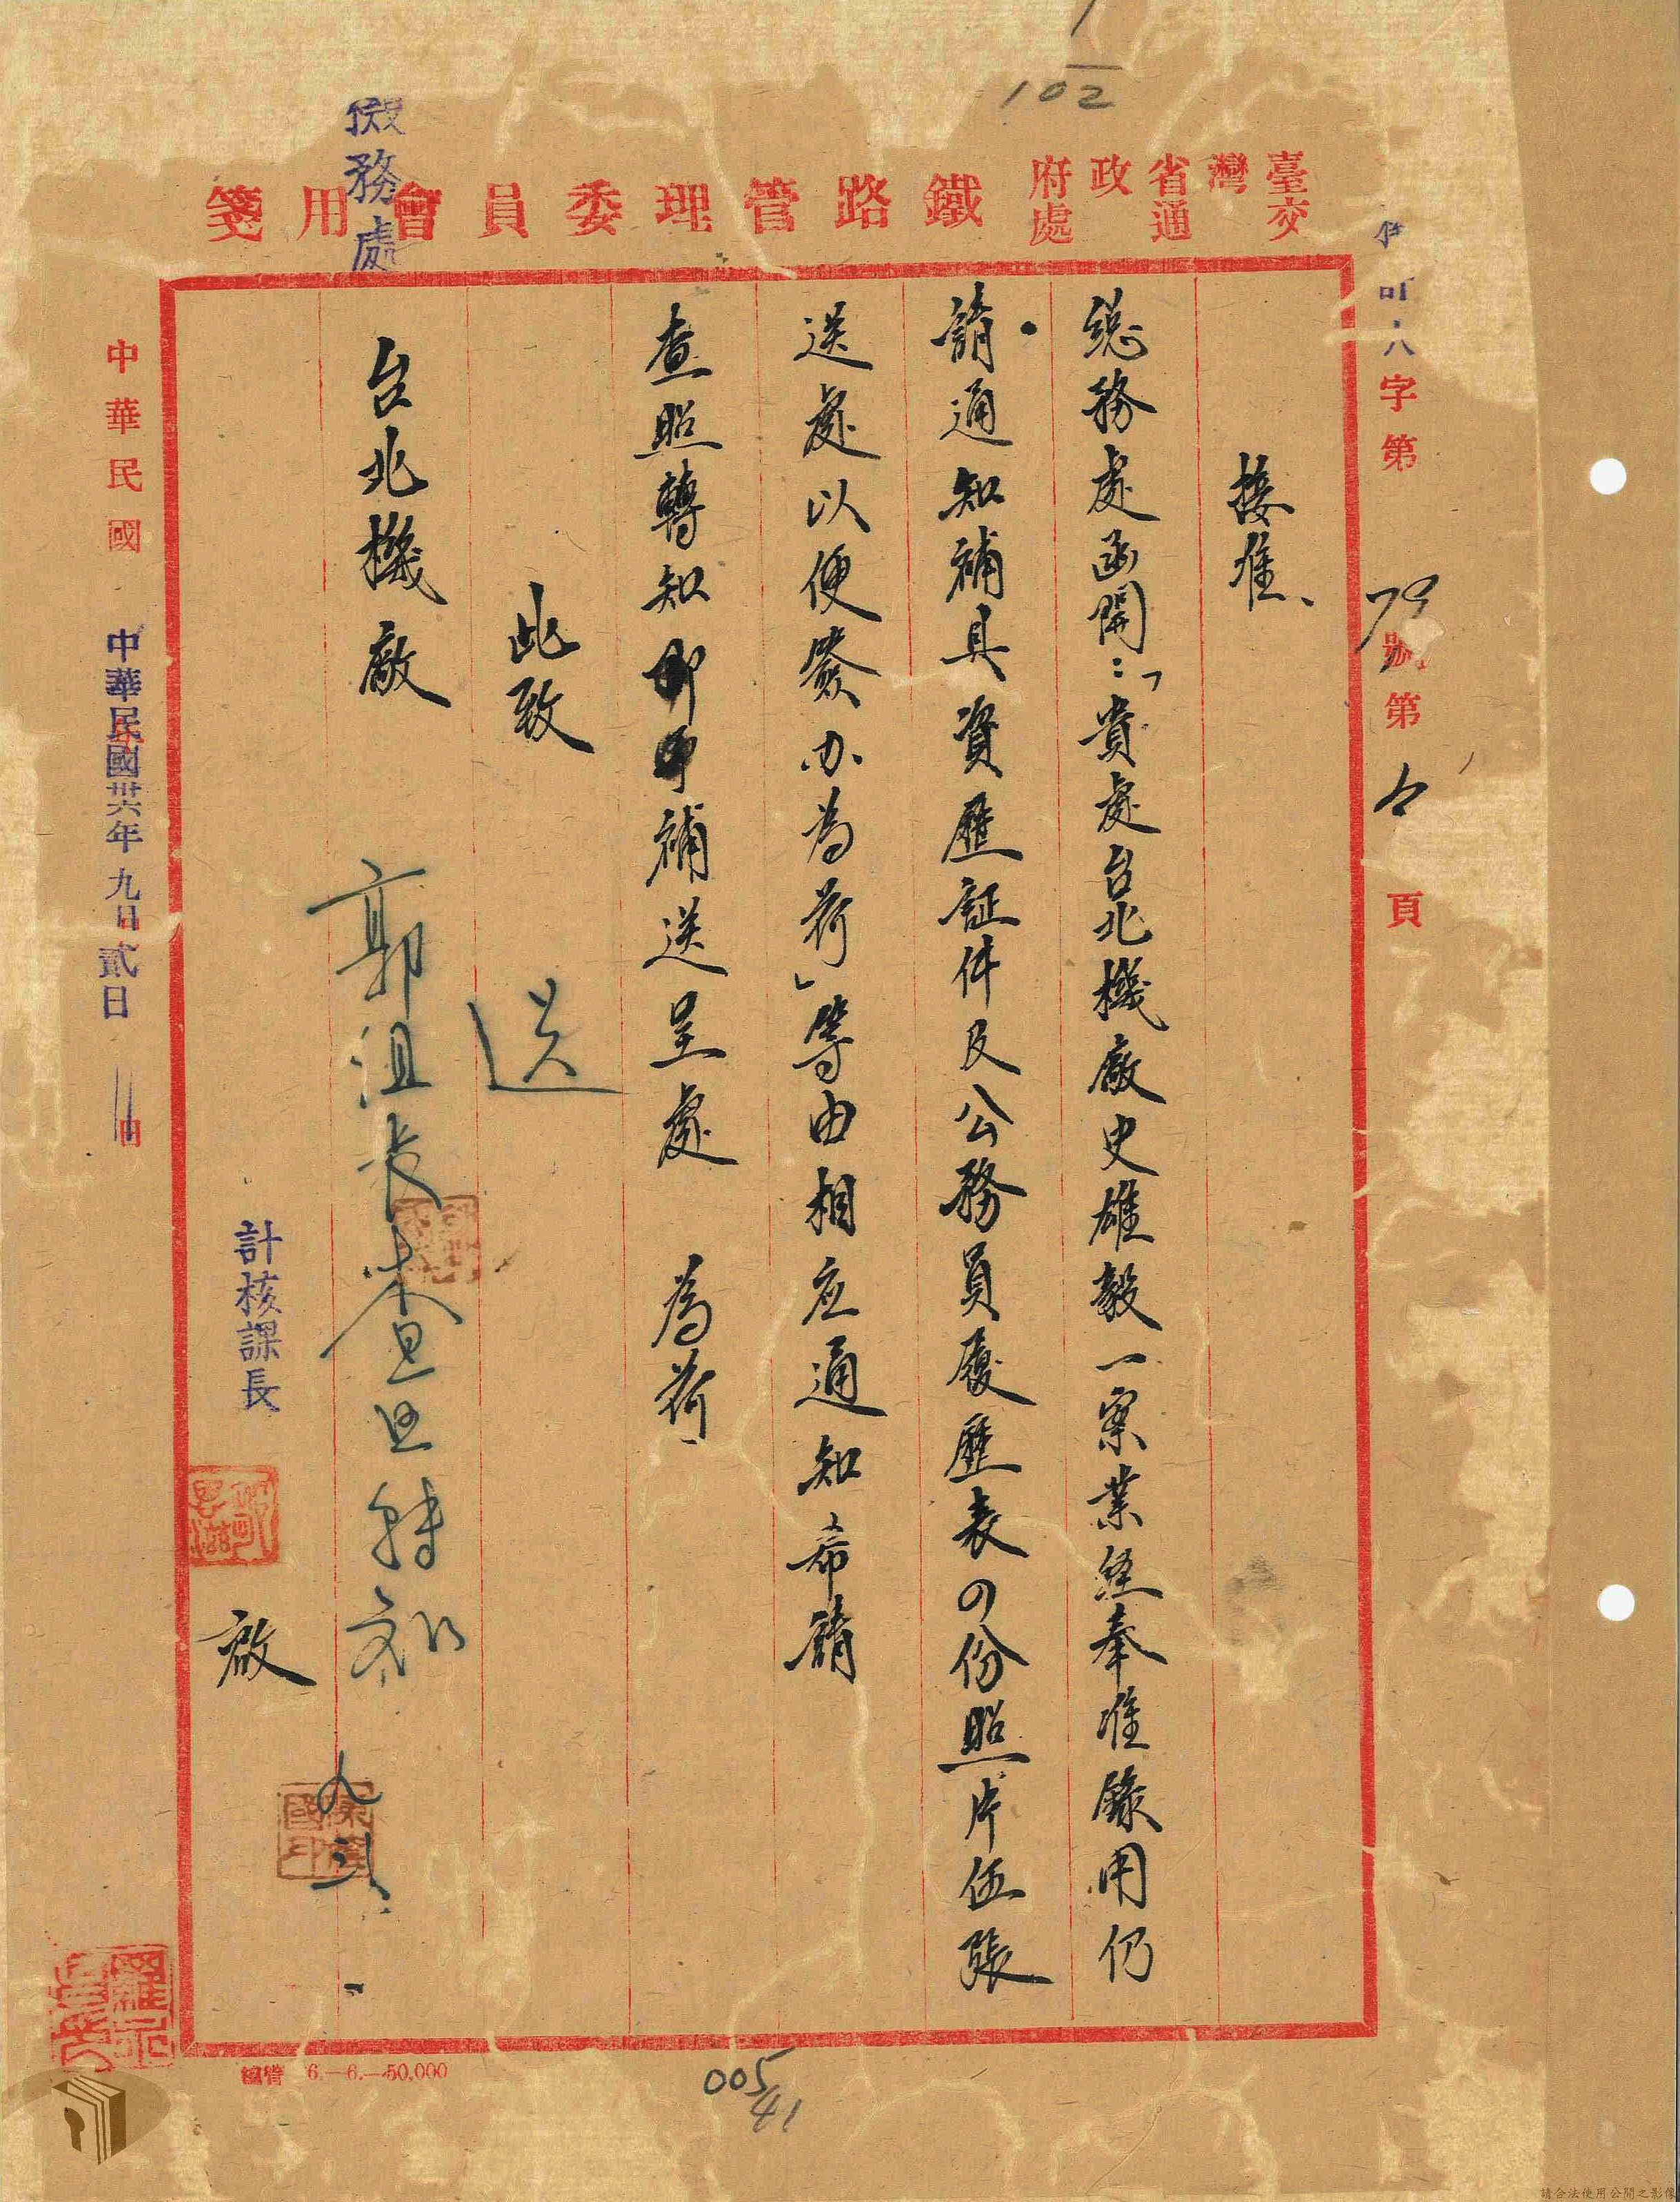 102
臺灣省政府交通處
鐵路管理委員會用箋
務處
字第
號第
頁
接准、
總務處函開：「貴處台北機廠史雄毅一案業經奉准錄用仍
請通知補具資歷証件及公務員履歷表の份照片伍張
送處以便發办為荷」等由相应通知希請
查照轉知补送呈處 為荷
此致
台北機廠
計核課長
啟
送
郭沮長查照轉知
中華民國
中華民國卅六年九月貳日
鐵管 6.—6.—50.000
005/41
請合法使用公開之影像